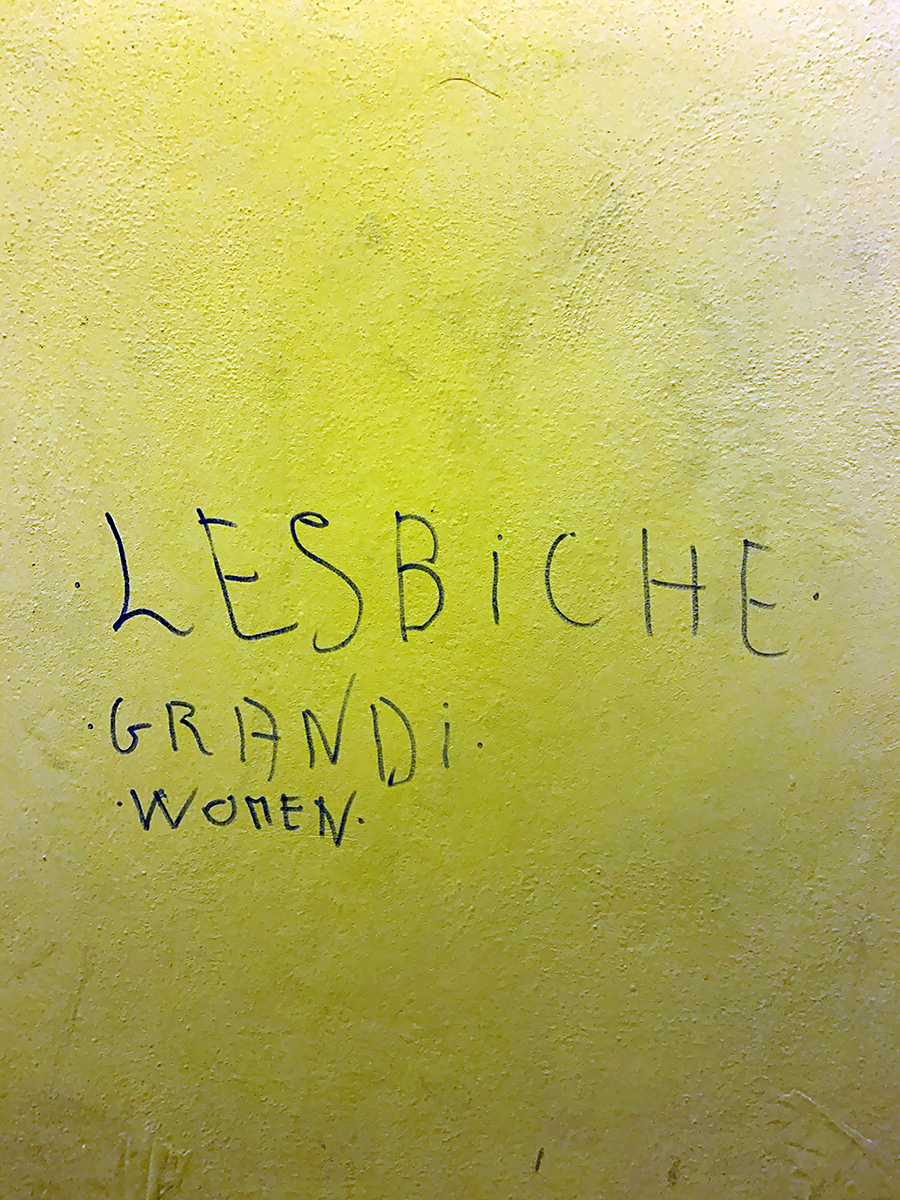 ·LESBiCHE·
·GRANDi·
·WOMEN·